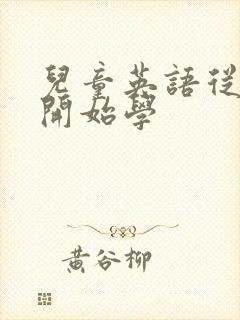 兒童英語從
開始學
黃谷柳